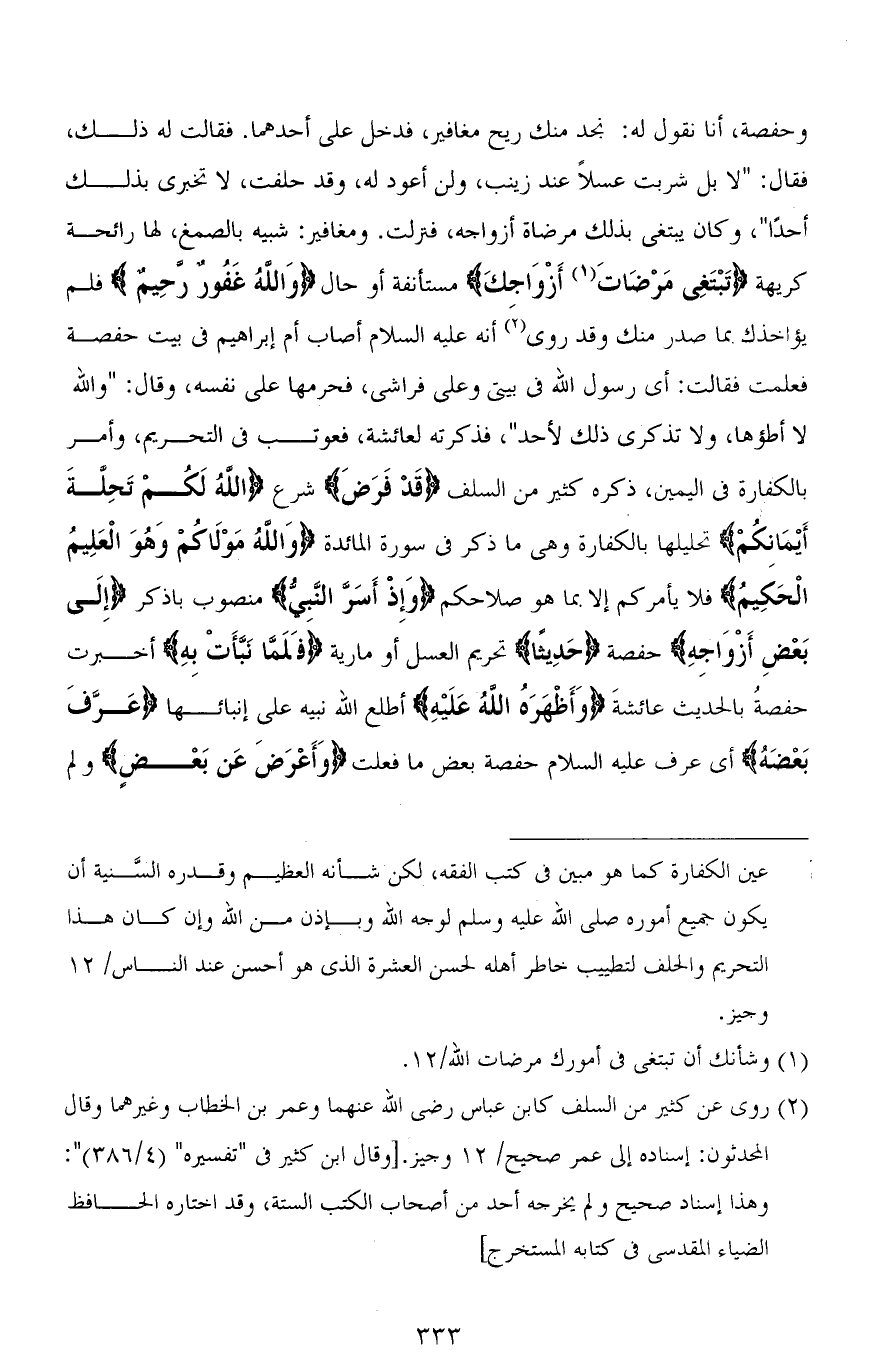 وحفصة، أنا نقول له: نجد منك ريح مغافير، فدخل على أحدهما. فقالت له ذلك،
فقال: "لا بل شربت عسلاً عند زينب، ولن أعود له، وقد حلفت، لا تخبرى بذلك
أحدًا"، وكان يبتغى بذلك مرضاة أزواجه، فنزلت. ومغافير: شبيه بالصمغ، لها رائحة
كريهة ﴿تَبْتَغِى مَرْضَاتَ(١) أَزْوَاجِكَ﴾ مستأنفة أو حال ﴿وَاللَّهُ غَفُورٌ رَّحِيمٌ﴾ فلم
يؤاخذك بما صدر منك وقد روى(٢) أنه عليه السلام أصاب أم إبراهيم فى بيت حفصة
فعلمت فقالت: أى رسول الله فى بيتى وعلى فراشى، فحرمها على نفسه، وقال: "والله
لا أطؤها، ولا تذكرى ذلك لأحد"، فذكرته لعائشة، فعوتب فى التحريم، وأمر
بالكفارة فى اليمين، ذكره كثير من السلف ﴿قَدْ فَرَضَ﴾ شرع ﴿اللَّهُ لَكُمْ تَحِلَّةَ
أَيْمَانِكُمْ﴾ تحليلها بالكفارة وهى ما ذكر فى سورة المائدة ﴿وَاللَّهُ مَوْلَاكُمْ وَهُوَ الْعَلِيمُ
الْحَكِيمُ﴾ فلا يأمركم إلا بما هو صلاحكم ﴿وَإِذْ أَسَرَّ النَّبِيُّ﴾ منصوب باذكر ﴿إِلَى
بَعْضِ أَزْوَاجِهِ﴾ حفصة ﴿حَدِيثًا﴾ تحريم العسل أو مارية ﴿فَلَمَّا نَبَّأَتْ بِهِ﴾ أخبرت
حفصةُ بالحديث عائشةَ ﴿وَأَظْهَرَهُ اللَّهُ عَلَيْهِ﴾ أطلع الله نبيه على إنبائها ﴿عَرَّفَ
بَعْضَهُ﴾ أى عرف عليه السلام حفصة بعض ما فعلت ﴿وَأَعْرَضَ عَن بَعْضٍ﴾ ولم
عين الكفارة كما هو مبين فى كتب الفقه، لكن شأنه العظيم وقدره السَّنية أن
يكون جميع أموره صلى الله عليه وسلم لوجه الله وبإذن من الله وإن كان هذا
التحريم والحلف لتطييب خاطر أهله لحسن العشرة الذى هو أحسن عند الناس/ ١٢
وجيز.
(١) وشأنك أن تبتغى فى أمورك مرضات الله/١٢.
(٢) روى عن كثير من السلف كابن عباس رضى الله عنهما وعمر بن الخطاب وغيرهما وقال
المحدثون: إسناده إلى عمر صحيح/ ١٢ وجيز.[وقال ابن كثير فى "تفسيره" (٣٨٦/٤)":
وهذا إسناد صحيح ولم يخرجه أحد من أصحاب الكتب الستة، وقد اختاره الحافظ
الضياء المقدسى فى كتابه المستخرج]
٣٣٣